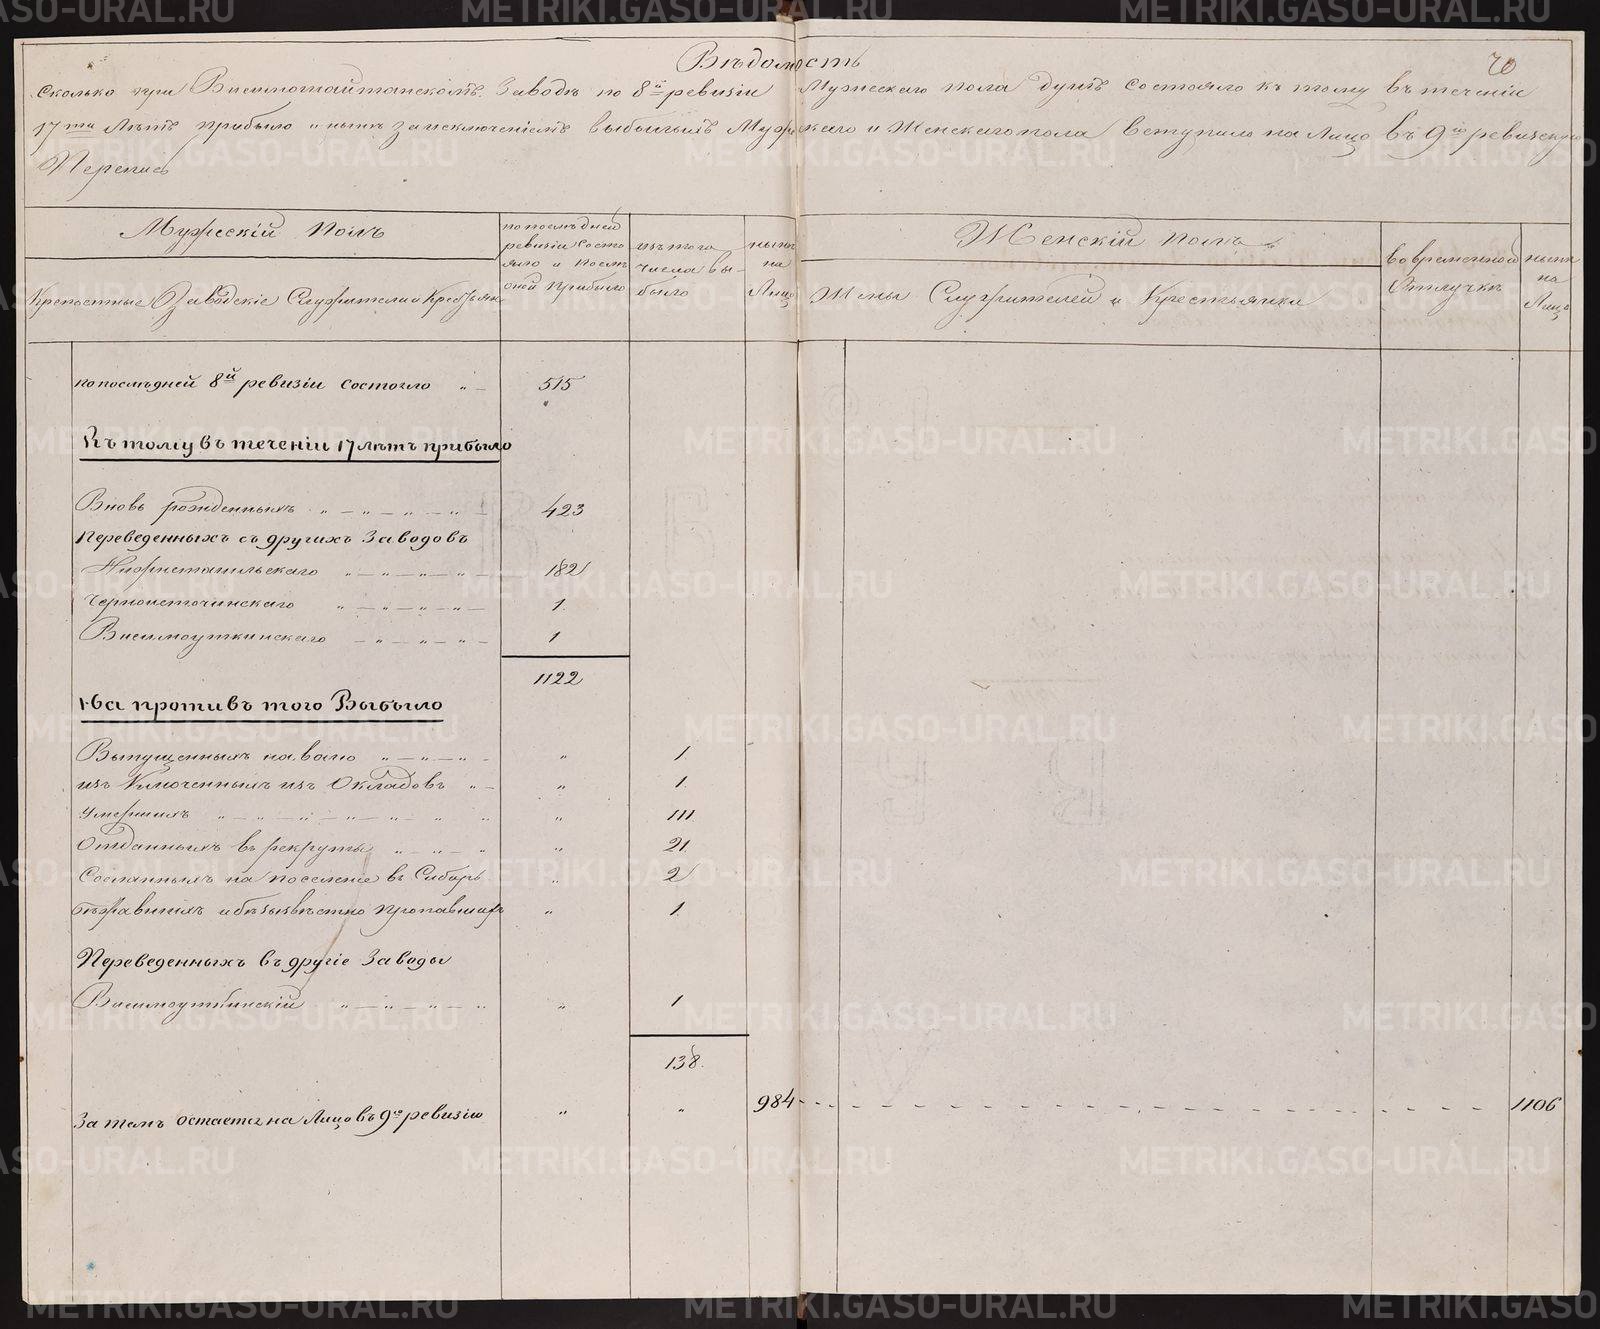 Вѣдомость
70
Сколько при Висимошайтанскомъ Заводѣ по 8й ревизіи Мужескаго пола душъ состояло къ тому въ теченіи
17ти Лѣтъ прибыло и нынѣ заисключеніемъ выбывшихъ Мужескаго и Женскаго пола вступило на Лицо въ 9ю ревизскую
Перепись
Мужескій Полъ
Крепостные Заводскіе Служители и Крестьян
по послѣдней
ревизіи состо
яло и послѣ
оной прибыло
изъ того
числа вы-
было
нынѣ
на
Лицо
Женскій полъ
Жены Служителей и Крестьянки
во временной
Отлучкѣ
нынѣ
на
Лицо
по послѣдней 8й ревизіи состояло " - 515
Къ тому въ теченіи 17 лѣтъ прибыло
Вновь рожденныхъ 423
Переведенныхъ съ другихъ Заводовъ
Нижнетагильскаго 182
Черноисточинскаго 1
Висимоуткинскаго 1
1122
На противъ того Выбыло
Выпущенныхъ на волю " 1
изъ Ключенныхъ изъ Окладовъ " 1
Умершихъ " 111
Отданныхъ въ рекруты " 21
Сосланныхъ на поселеніе въ Сибирь " 2
бѣжавшихъ и безъизвѣстно пропавшихъ " 1
Переведенныхъ въ другіе Заводы
Висимоуткинскій " 1
138
За темъ остается на Лицо въ 9ю ревизію " " 984 1106
METRIKI.GASO-URAL.RU